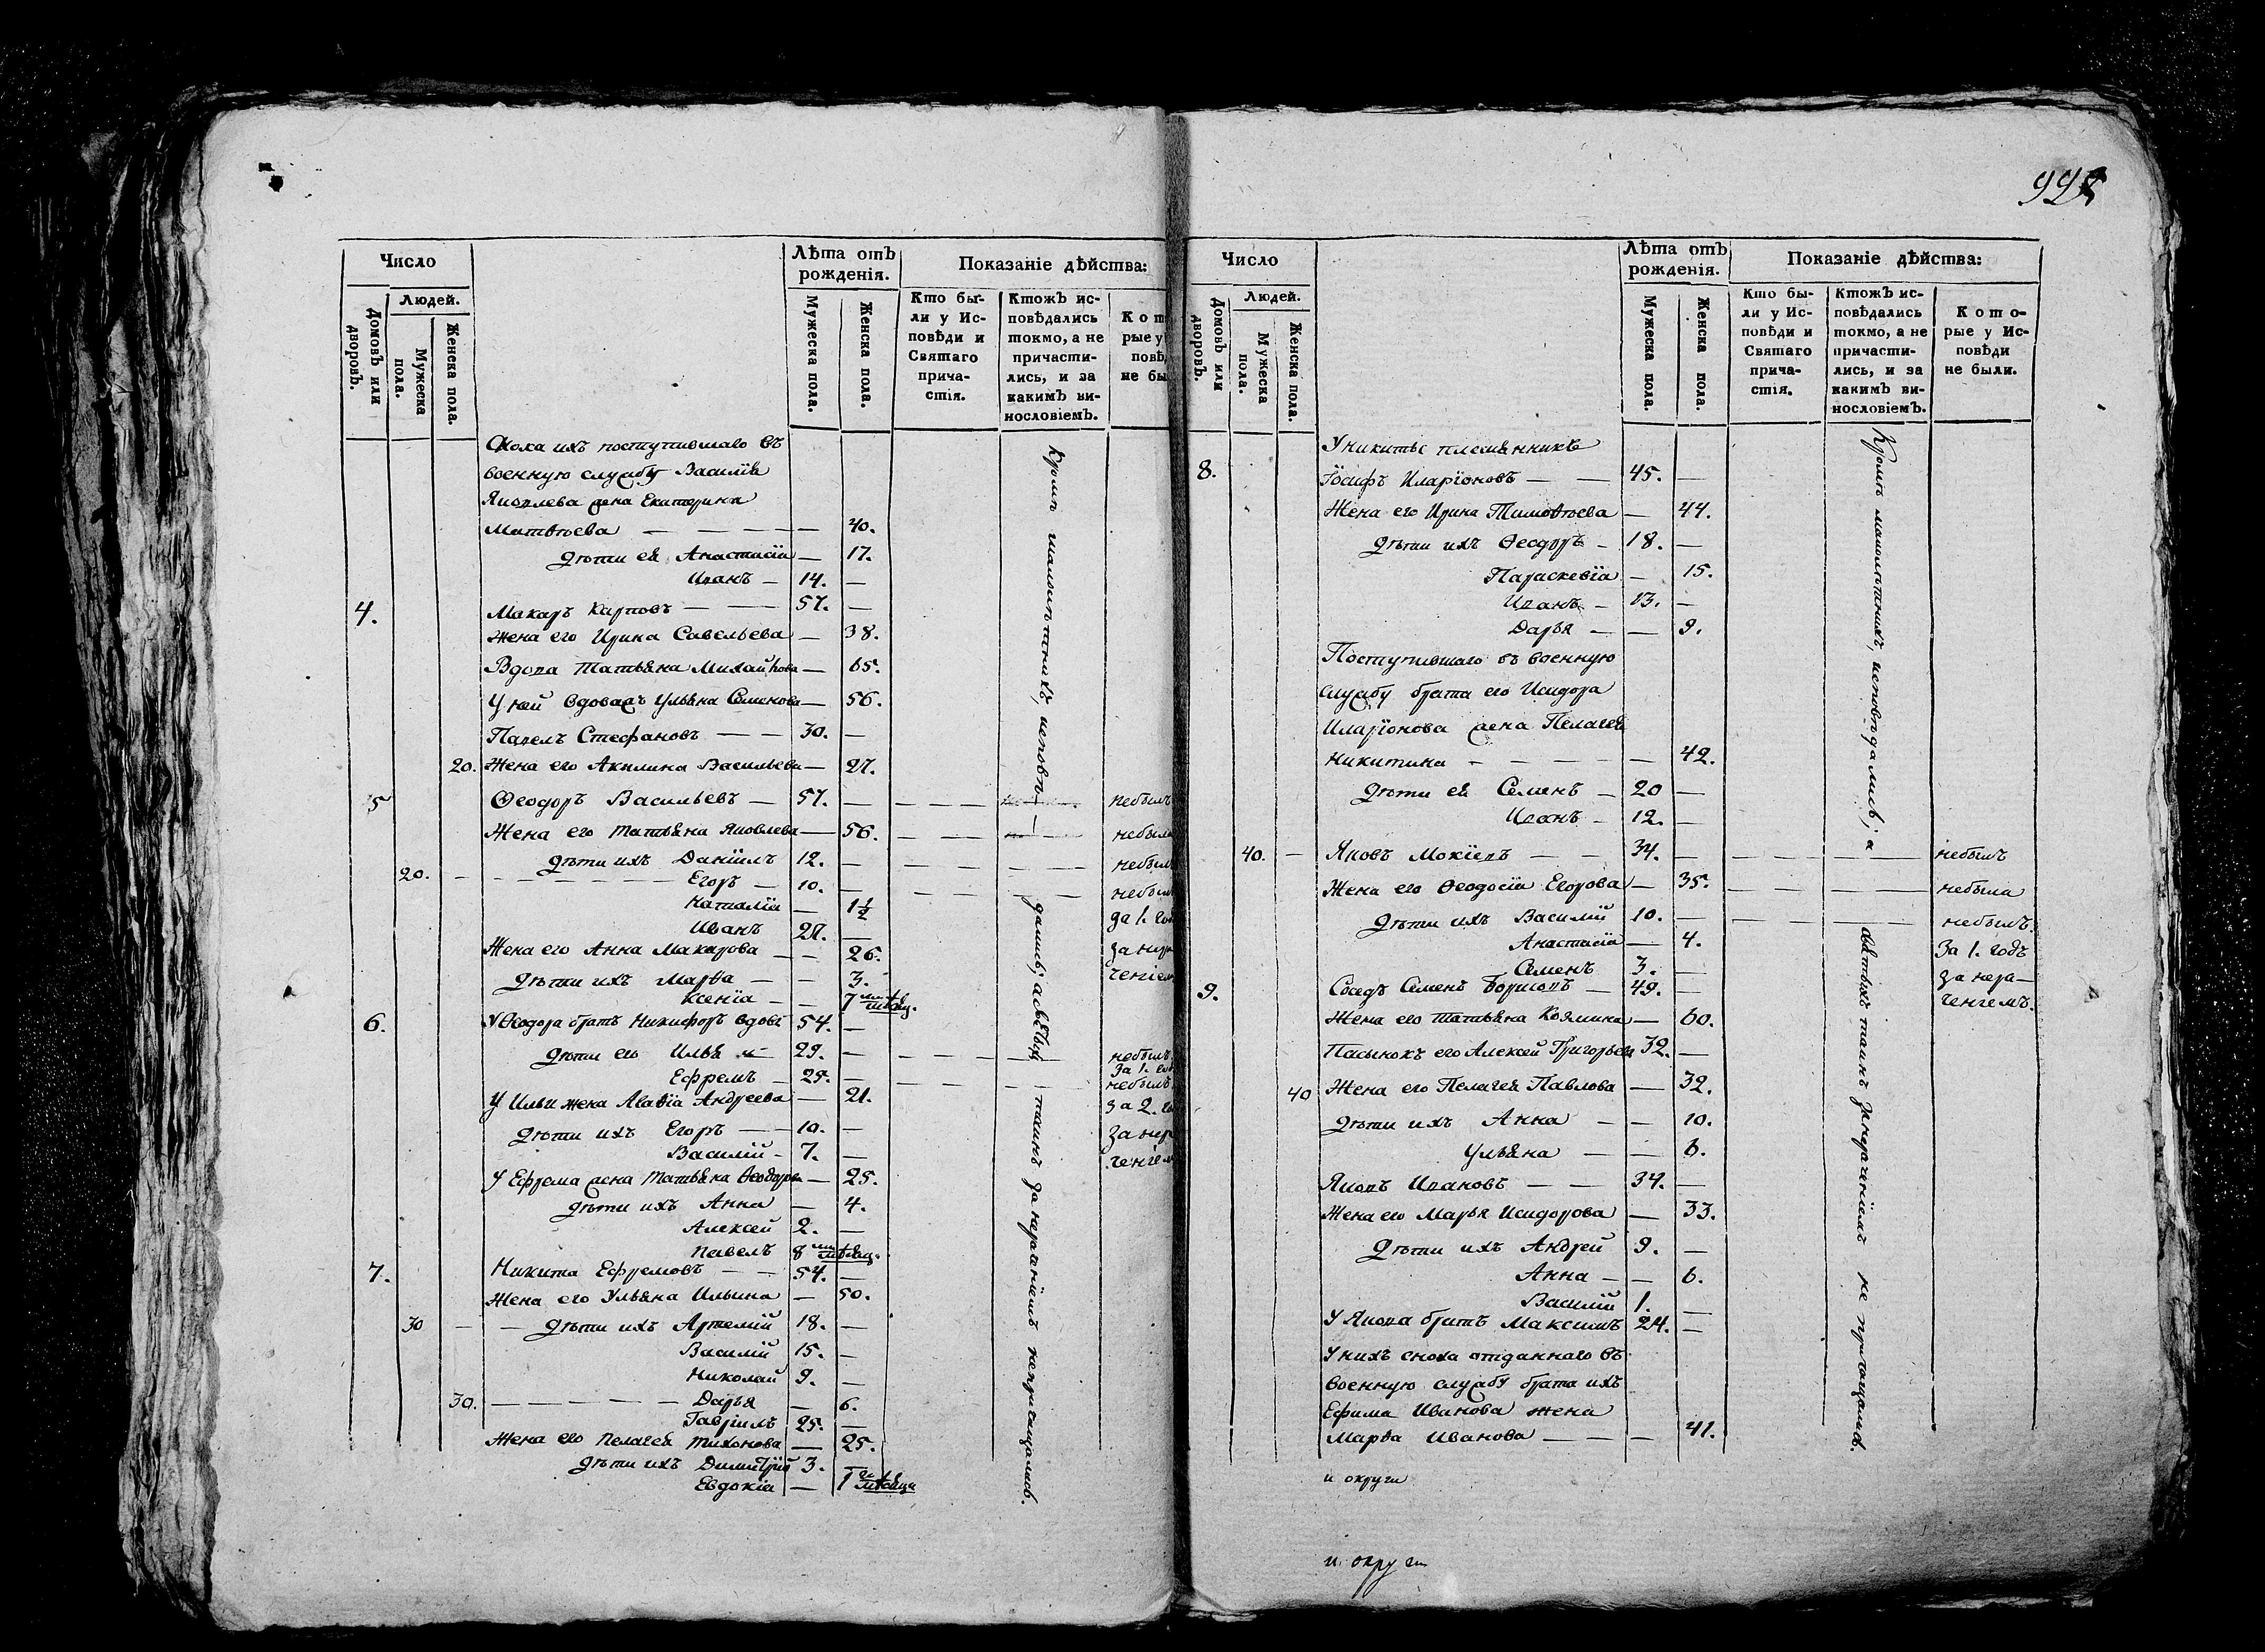 992
Число
Лѣта отъ рожденія.
Показаніе дѣйства:
Людей.
Домовъ или дворовъ.
Мужеска пола.
Женска пола.
Мужеска пола.
Женска пола.
Кто бы-
ли у Ис-
повѣди и
Святаго
прича-
стія.
Ктожъ ис-
повѣдались
токмо, а не
причасти-
лись, и за
какимъ ви-
нословіемъ.
Кот
рые у
повѣ
не бы
Сноха ихъ поступившаго въ
военную службу Василія
Яковлева жена Екатерина
Матвѣева — 40.
дѣти ея Анастасія — 17.
Иванъ — 14. —
4. Макаръ Карповъ — 57. —
Жена его Ирина Савельева — 38.
Вдова Татьяна Михайлова — 65.
У ней вдовы Ульяна Семенова — 56.
Павелъ Стефановъ — 30. —
20. Жена его Акилина Васильева — 27.
5 Ѳеодоръ Васильевъ — 57. — небылъ
Жена его Татьяна Яковлева — 56. — небыла
дѣти ихъ Даніилъ 12. — небылъ
20. Егоръ — 10. — небылъ
Наталія — 1½ за 1. год
Иванъ 27. —
Жена его Анна Макарова — 26. за нера
дѣти ихъ Марѳа — 3. ченіем
Ксенія — 7 мѣсяц.
6. У Ѳеодора братъ Никифоръ вдовъ 54. —
дѣти его Илья 29. — небылъ
за 1. год
Ефремъ — 25. — небылъ
У Ильи жена Агаѳія Андреева — 21. за 2. го
дѣти ихъ Егоръ — 10. — за нер
Василій — 7. — ченіем
У Ефрема жена Татьяна Ѳеодорова — 25.
дѣти ихъ Анна — 4.
Алексей 2. —
Павелъ 8 мѣсяц.
7. Никита Ефремовъ — 54. —
Жена его Ульяна Ильина — 50.
30 — дѣти ихъ Артемій 18. —
Василій 15. —
Николай 9. —
30. — Дарья — 6.
Гавріилъ 25. —
Жена его Пелагея Тихонова — 25.
дѣти ихъ Димитрій 3. —
Евдокія — 1 мѣсяца
Кромѣ малолѣтнихъ, исповѣ—
дались; а
таинъ за нераченіемъ непричащались.
Число
Лѣта отъ рожденія.
Показаніе дѣйства:
Людей.
Домовъ или дворовъ.
Мужеска пола.
Женска пола.
Мужеска пола.
Женска пола.
Кто бы-
ли у Ис-
повѣди и
Святаго
прича-
стія.
Ктожъ ис-
повѣдались
токмо, а не
причасти-
лись, и за
какимъ ви-
нословіемъ.
Кото-
рые у Ис-
повѣди
не были.
У Никиты племянникъ
8. Іосифъ Иларіоновъ — 45. —
Жена его Ирина Тимоѳеева — 44.
дѣти ихъ Ѳеодоръ — 18. —
Параскевіа — 15.
Иванъ — 13. —
Дарья — 9.
Поступившаго въ военную
службу брата его Исидора
Иларіонова жена Пелагея
Никитина — 42.
дѣти ея Семенъ — 20 —
Иванъ — 12. —
40. — Яковъ Мокіевъ — 34. — небылъ
Жена его Ѳеодосія Егорова — 35. — небыла
дѣти ихъ Василій 10. — небылъ.
Анастасія — 4. За 1. годъ
Семенъ 3. — за нера—
9. Соседъ Семенъ — 49. — ченіемъ.
Жена его Татьяна Козмина — 60.
Пасынокъ его Алексей Григорьевъ 32. —
40 Жена его Пелагея Павлова — 32.
дѣти ихъ Анна — 10.
Ульяна — 6.
Яковъ Ивановъ — 34. —
Жена его Марья Исидорова — 33.
дѣти ихъ Андрей 9. —
Анна — 6.
Василій 1. —
У Якова братъ Максимъ 24. —
У нихъ сноха отданнаго въ
военную службу брата ихъ
Ефима Иванова жена
Марѳа Иванова — 41.
Кромѣ малолѣтнихъ, исповѣдались; а
святыхъ таинъ за нераченіемъ не причащались.
и округи
и округи